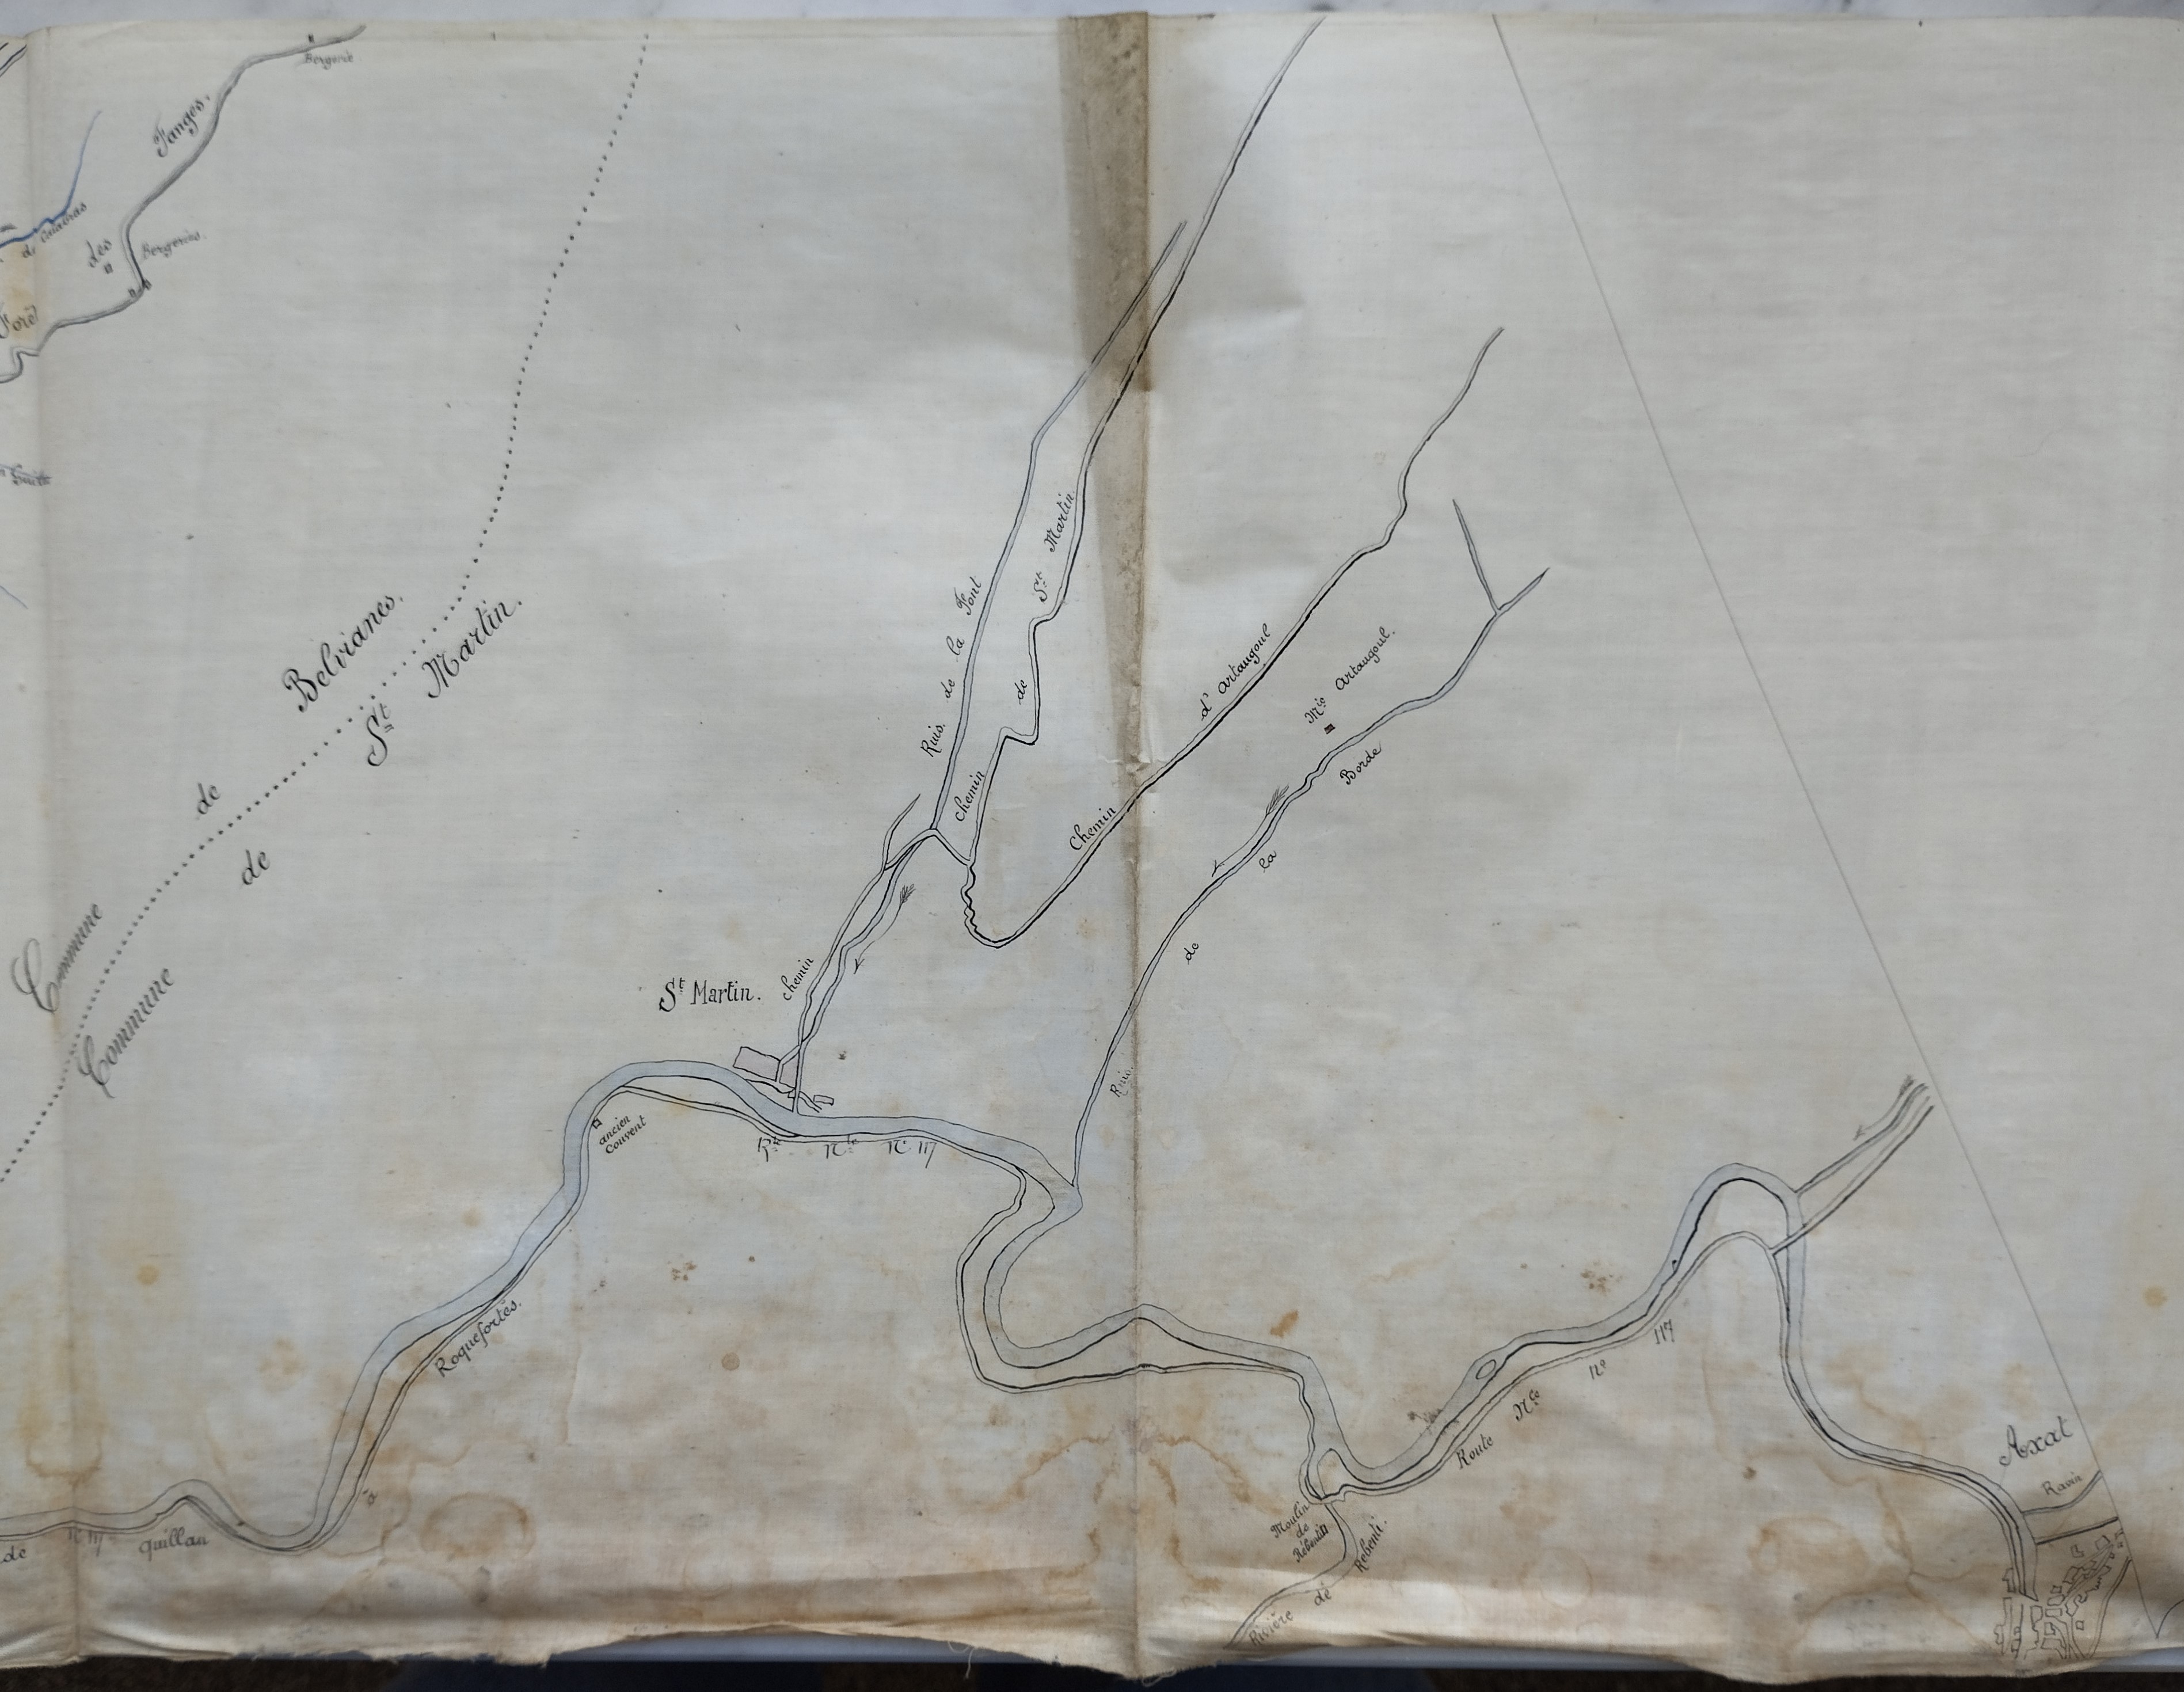 Bergerie
Fanges.
des
Bergeries.
Forêt
Commune de Belvianes.
Commune de St Martin.
Ruis. de la Font
Chemin de St Martin
Chemin d'Artaugoul
Mie Artaugoul.
Ruis. de la Borde
St Martin.
Chemin
ancien
Couvent
Rte Nle N 117
Roquefortès.
à
de Quillan
N 117
Route Nle no 117
Moulin
de
Rébenti
Rivière de Rebenti.
Axat
Ravin